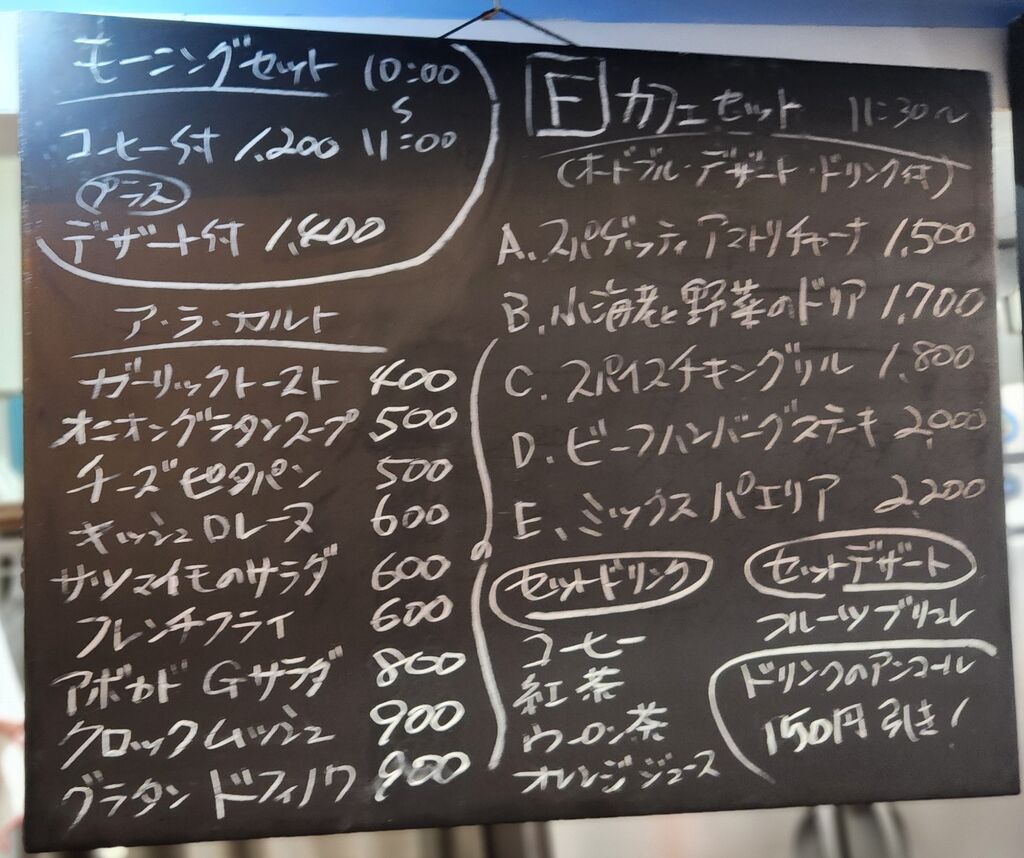 モーニングセット 10:00
〜
コーヒー付 1,200 11:00
プラス
デザート付 1,400
ア・ラ・カルト
ガーリックトースト 400
オニオングラタンスープ 500
チーズピタパン 500
キッシュロレーヌ 600
サツマイモのサラダ 600
フレンチフライ 600
アボカド Gサラダ 800
クロックムッシュ 900
グラタン ドフィノワ 900
F カフェセット 11:30〜
(オードブル・デザート・ドリンク付)
A、スパゲッティアマトリチャーナ 1,500
B、小海老と野菜のドリア 1,700
C、スパイスチキングリル 1,800
D、ビーフハンバーグステーキ 2,000
E、ミックスパエリア 2,200
セットドリンク
コーヒー
紅茶
ウーロン茶
オレンジジュース
セットデザート
フルーツブリュレ
ドリンクのアンコール
150円引き!